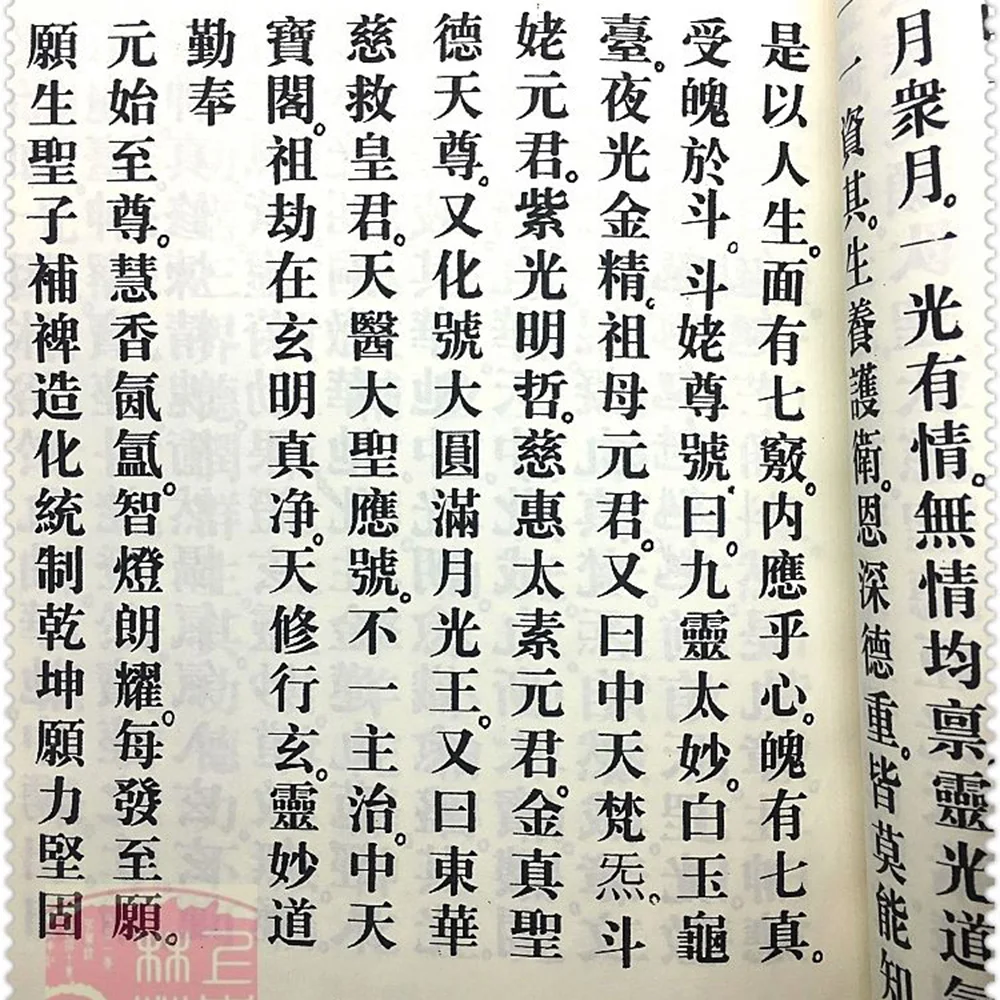 月衆月。一光有情。無情均禀靈光道
資其。生養護衛。恩深德重。皆莫能知
是以人生。面有七竅。内應乎心。魄有七真。
受魄於斗。斗姥尊號。曰。九靈太妙。白玉龜
臺。夜光金精。祖母元君。又曰中天梵炁。斗
姥元君。紫光明哲。慈惠太素元君。金真聖
德天尊。又化號大圓滿月光王。又曰東華
慈救皇君。天醫大聖應號。不一主治。中天
寶閣。祖劫在玄明真净。天修行玄。靈妙道
勤奉
元始至尊。慧香氤氲。智燈朗耀。每發至願。
願生聖子補裨造化統制乾坤願力堅固